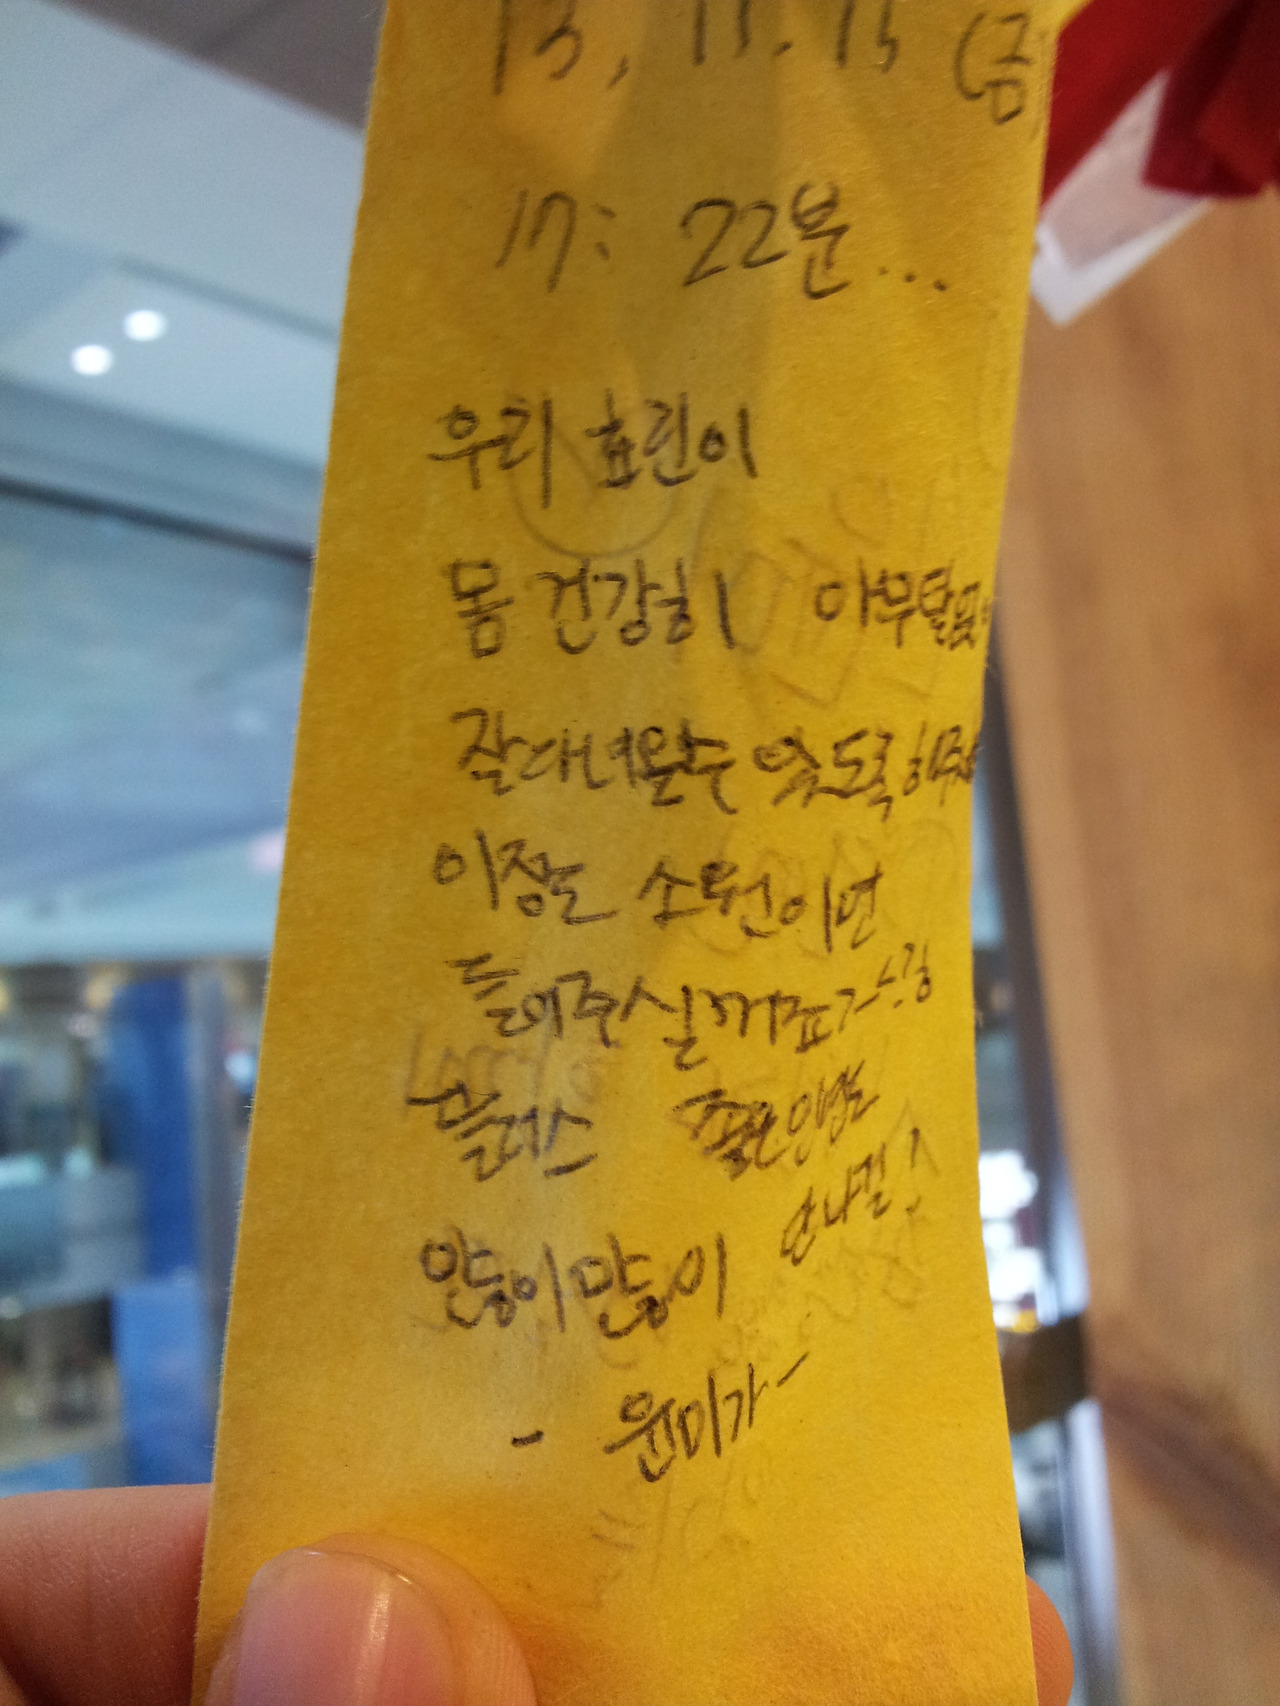 13, 11. 15 (금
17: 22분...
우리 효린이
몸 건강히 아무탈없
잘다녀올수 있도록 해주
이정도 소원이면
들어주실꺼죠?
플러스 좋은인연도
만나길!
많이많이
- 원미가-